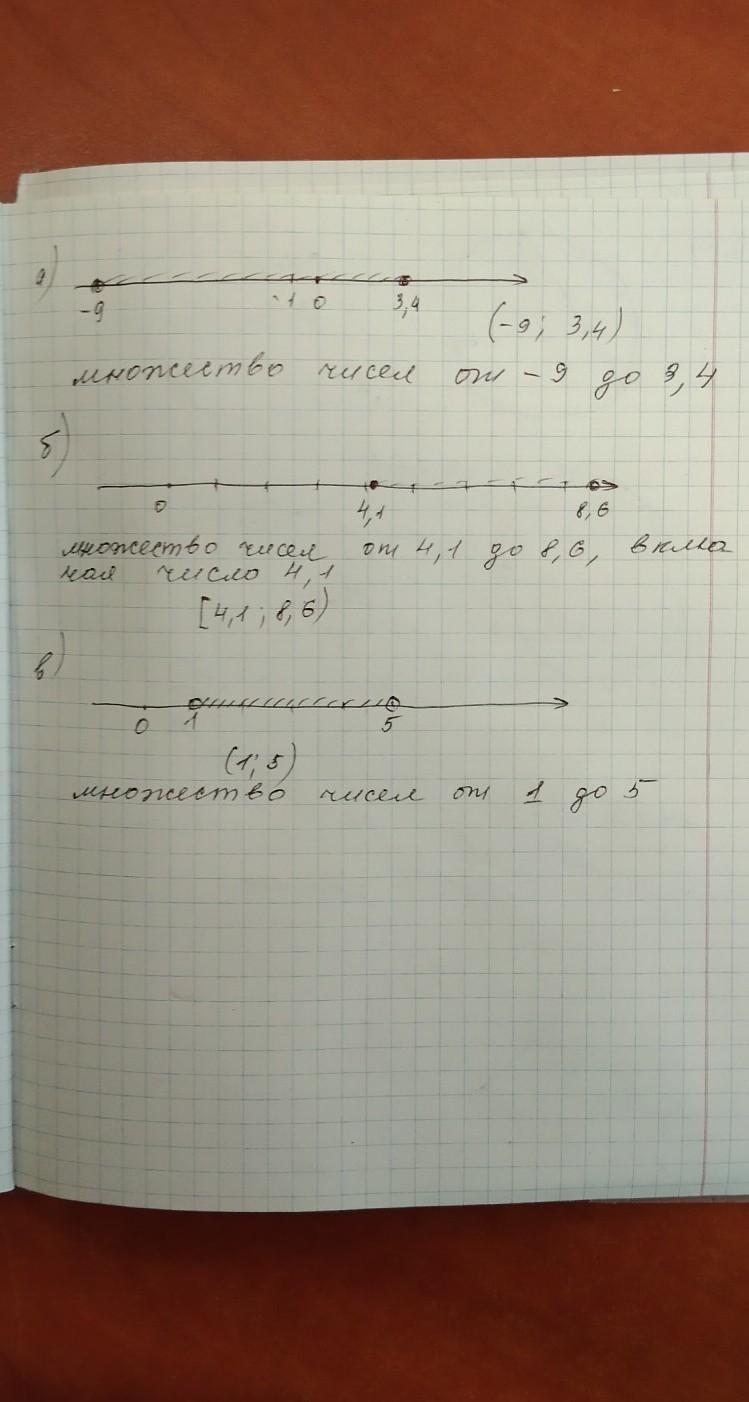 а)
-9 -1 0 3,4
(-9; 3,4)
множество чисел от -9 до 3,4
б)
0 4,1 8,6
множество чисел от 4,1 до 8,6, вклю
чая число 4,1
[4,1; 8,6)
в)
0 1 5
(1; 5)
множество чисел от 1 до 5